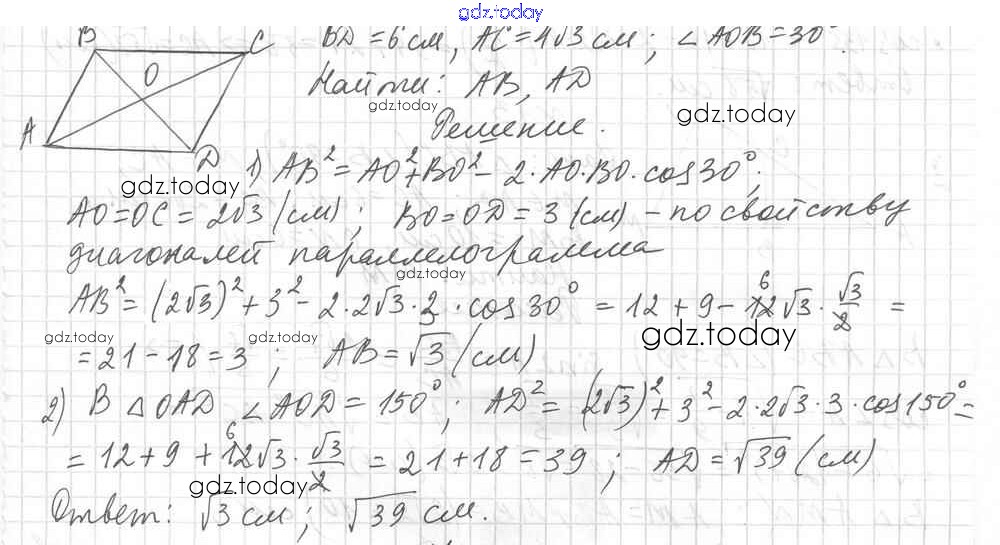 gdz.today
B C O A D
BD = 6 см, AC = 4√3 см; ∠AOB = 30°.
Найти: AB, AD
gdz.today gdz.today
Решение.
gdz.today
1) AB² = AO² + BO² - 2·AO·BO·cos30°;
AO = OC = 2√3 (см); BO = OD = 3 (см) – по свойству
диагоналей параллелограмма
gdz.today
AB² = (2√3)² + 3² - 2·2√3·3·cos30° = 12 + 9 - 12 6 √3 · √3/2 =
gdz.today gdz.today gdz.today
= 21 - 18 = 3; AB = √3 (см)
2) В △OAD ∠AOD = 150°; AD² = (2√3)² + 3² - 2·2√3·3·cos150° =
= 12 + 9 + 12 6 √3 · √3/2 = 21 + 18 = 39; AD = √39 (см)
gdz.today gdz.today
Ответ: √3 см; √39 см.